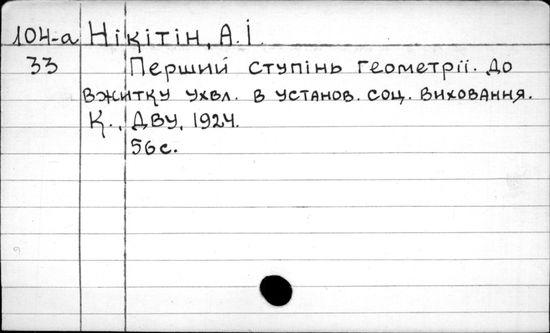 104-а Нікітін, А.І.
33 Перший ступінь геометрії. До
вжитку ухвл. в установ. соц. виховання.
К., ДВУ, 1924.
56 с.